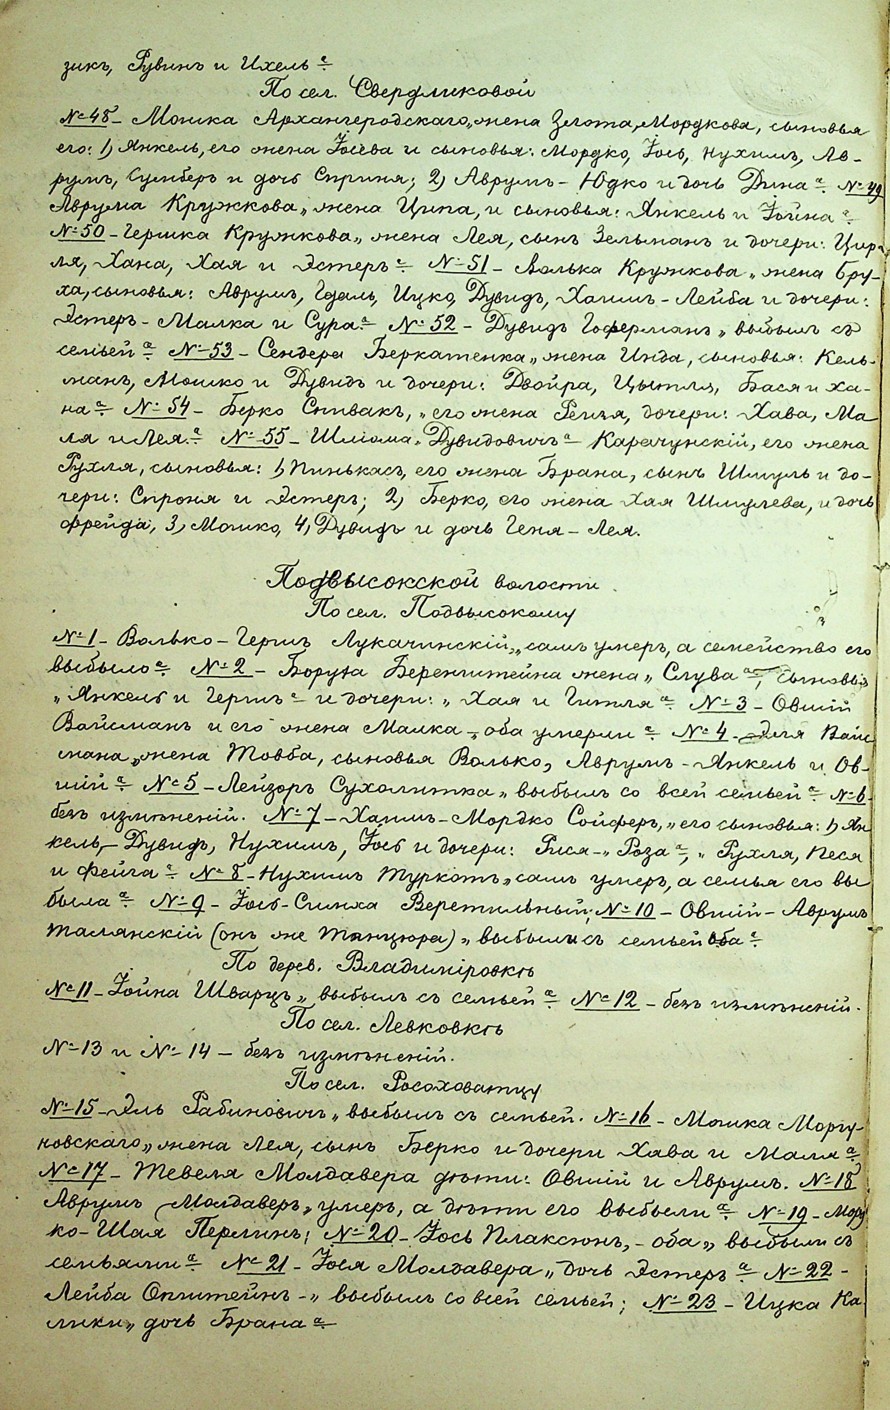 зикъ, Рувинъ и Ихель а.
По сел. Свердликовой
№ 48 – Мошка Архангеродскаго „жена Злота, Мордкова, сыновья
его: 1) Янкель, его жена Іосева и сыновья: Мордко, Іось, Нухимъ, Ав-
румъ, Сумберъ и дочь Сприня; 2) Аврумъ – Юдко и дочь Дина а. № 49
Аврума Кружкова „жена Ципа, и сыновья: Янкель и Іойна а.
№ 50 – Гершка Кружкова „жена Лея, сынъ Зельманъ и дочери: Цир-
ля, Хана, Хая и Эстеръ а. № 51 – Волька Кружкова „жена Бру-
ха, сыновья: Аврумъ, Гдаль, Ицко, Дувидъ, Хаимъ – Лейба и дочери:
Эстеръ – Малка и Сура а. № 52 – Дувидъ Гоферманъ „выбылъ съ
семьей а. № 53 – Сендера Беркатенка „жена Инда, сыновья: Кель-
манъ, Мошко и Дувидъ и дочери: Двойра, Цытля, Бася и Ха-
на а. № 54 – Берко Спивакъ, „его жена Рейзя, дочери: Хава, Ма-
ля и Лея а. № 55 – Шліома „Дувидовичъ а – Карачунскій, его жена
Рухля, сыновья: 1) Пинькасъ, его жена Брана, сынъ Шмуль и до-
чери: Спроня и Эстеръ; 2) Берко, его жена Хая Шмулева, и дочь
Фрейда, 3) Мошко, 4) Дувидъ и дочь Геня – Лея.
Подвысокской волости
По сел. Подвысокому
№ 1 – Волько – Гершъ Лукачинскій, „самъ умеръ, а семейство его
выбыло а. № 2 – Боруха Беренштейна жена „Слува а, сыновья
„Янкель и Гершъ а – и дочери: „Хая и Гитля а. № 3 – Овшій
Вайсманъ и его жена Малка „оба умерли а. № 4 – Эля Вайс-
мана „жена Товба, сыновья Волько, Аврумъ – Янкель и Ов-
шій а. № 5 – Лейзоръ Сухолитка „выбылъ со всей семьей а. № 6 –
безъ измѣненій. № 7 – Хаимъ – Мордко Сойферъ, „его сыновья: 1) Ян-
кель, – Дувидъ, Нухимъ, Іось и дочери: Рися – „Роза а, „Рухля, Песя
и Фейга а. № 8 – Нухимъ Туркотъ „самъ умеръ, а семья его вы-
была а. № 9 – Іось – Симха Веретильный; № 10 – Овшій – Аврумъ
Талянскій (онъ же Танцюра) „выбыли съ семьей оба а.
По дерев. Владиміровкѣ
№ 11 – Іойна Шварцъ „выбылъ съ семьей а. № 12 – безъ измѣненій.
По сел. Левковкѣ
№ 13 и № 14 – безъ измѣненій.
По сел. Росоховатцу
№ 15 – Эль Рабиновичъ „выбылъ съ семьей. № 16 – Мошка Моргу-
новскаго „жена Лея, сынъ Берко и дочери Хава и Маля а.
№ 17 – Тевеля Молдавера дѣти: Овшій и Аврумъ. № 18
Аврумъ Молдаверъ „умеръ, а дѣти его выбыли а. № 19 – Морд-
ко – Шая Перлинъ; № 20 – Іось Плаксюнъ, – оба „выбыли съ
семьями а. № 21 – Іося Молдавера „дочь Эстеръ а. № 22 –
Лейба Општейнъ – „выбылъ со всей семьей; № 23 – Ицка Ка-
лики „дочь Брана а.